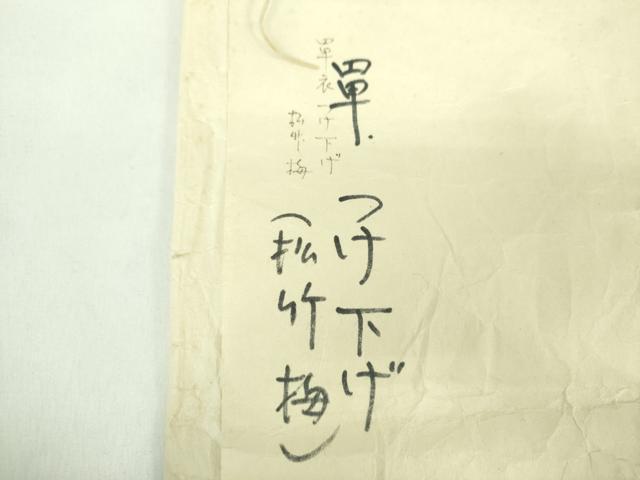 單.
つけ下げ
(松竹梅)
單衣つけ下げ
松竹梅